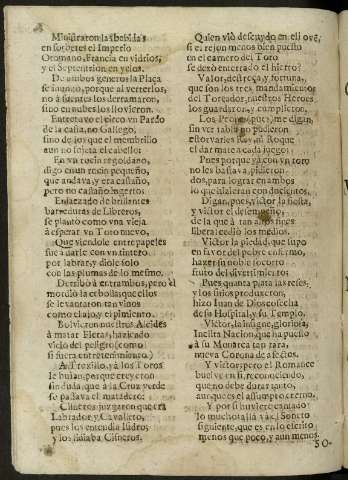 Ministraron las bebidas
en sorbetes el Imperio
Otomano, Francia en vidrios,
y el Septentrion en yelos.
De ambos generos la Plaça
se inundò, porque al verterlos,
no à fuentes los derramaron,
sino en nubes los llovieron.
Entretuvo el circo un Pardo
de la casta, no Gallego,
sino de los que el membrillo
aun no sujeta el cabello:
En un rocin regoldano,
digo en un rocin pequeño,
que andava, y era castaño,
pero no castaño ingerto:
Enlazado de brillantes
barreduras de Libreros,
se plantò como una vieja
à esperar un Toro nuevo,
Que viendole entre papeles
fue à darle con un tintero
por labrar, y diole solo
con las plumas de lo mesmo.
Derribò à entrambos, pero èl
mordiò la cebolla que ellos
se levantaron tan vivos
como el ajo, y el pimiento.
Bolvieron nuestros Alcides
à matar Fieras, haziendo
vicio del peligro (como
si fuera entretenimiento.)
A Trexillo, ya los Toros
le huìan, porque creyeron
sin duda, que à la Cruz verde
se passava el matadero:
Cisneros juzgaron que era
Labrador, y Cavallero,
pues los entendia Indus,
y los silvava Cisneros.
Quien viò descuydo en el joven,
si el rejon menos bien puesto
en el carnero del Toro
se dexò encerrado el hierro?
Valor, destreça, y fortuna,
que son los tres mandamientos
del Toreador, nuestros Heroes
los guardaron, y cumplieron.
Los Pronos, pues, me digan,
sin ver tabla no pudieron
estorvarles Rey, ni Roque
el dar mate à cada juego:
Pues porque ya con un toro
no les bastava, pidieron
dos, para lograr en ambos
lo que hizieran con docientos.
Digan, pues, victor la fiesta,
y victor el desempeño,
de la que à tan altos fines
liberal cediò los medios.
Victor la piedad, que supo
en favor del pobre enfermo,
hazer su noble socorro
fruto del divertimiento:
Pues quanta plata las reses,
y los sitios produxeron,
hizo Iuan de Dios cosecha
de su Hospital, y su Templo.
Victor, la insigne, gloriosa,
Inclita Nacion, que ha puesto
à su Monarca tan rara,
nueva Corona de afectos.
Y victor, pero el Romance
buelve en sì, reconociendo,
que no debe durar tanto,
aunque es el assumpto eterno.
Y por si huviere cantado
lo mucho, allà và el Soneto
siguiente, que es en lo escrito
menos que poco, y aun menos.
SO-